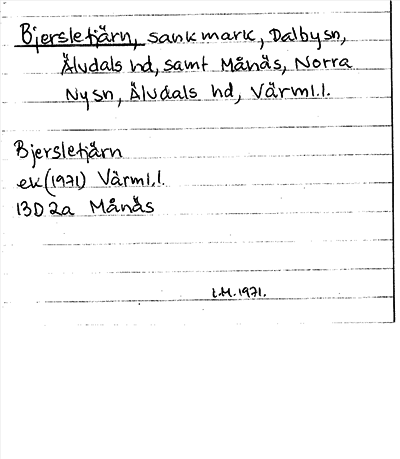 Bjersletjärn, sankmark, Dalbysn,
Älvdals hd, samt Månäs, Norra
Nysn, Älvdals hd, Värml.l.
Bjersletjärn
ek (1971) Värml.l.
13D 2a Månäs
L.M. 1971.